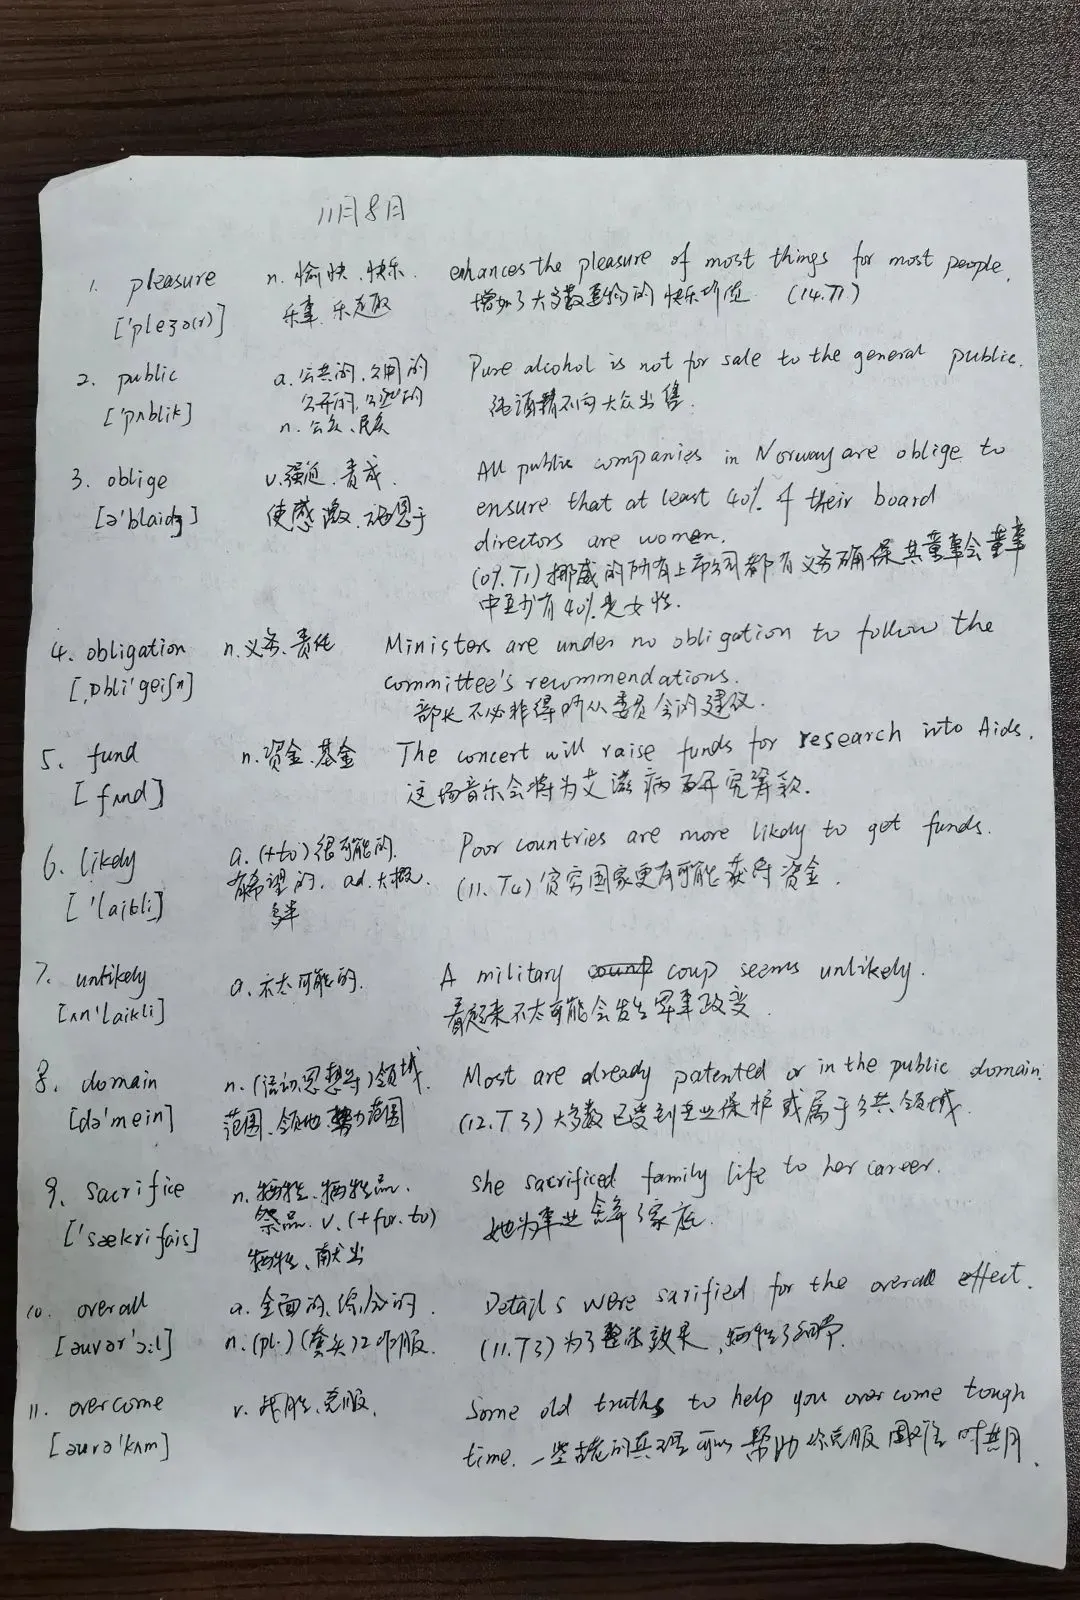 11月8日
1. pleasure n. 愉快、快乐. enhances the pleasure of most things for most people.
['pleʒə(r)] 乐事、乐趣 增加了大多数事物的快乐价值 (14.T1)
2. public a. 公共的、公用的 Pure alcohol is not for sale to the general public.
['pʌblik] 公开的、公立的 纯酒精不向大众出售.
n. 公众、民众
3. oblige v. 强迫、责成. All public companies in Norway are oblige to
[ə'blaidʒ] 使感激、施恩于 ensure that at least 40% of their board
directors are women.
(09.T1) 挪威的所有上市公司都有义务确保其董事会董事
中至少有40%是女性.
4. obligation n. 义务、责任 Ministers are under no obligation to follow the
[ˌɒbli'geiʃn] committee's recommendations.
部长不必非得听从委员会的建议.
5. fund n. 资金、基金 The concert will raise funds for research into Aids.
[fʌnd] 这场音乐会将为艾滋病研究筹款.
6. likely a. (+to) 很可能的. Poor countries are more likely to get funds.
['laikli] 有希望的. ad. 大概. (11.T4) 贫穷国家更有可能获得资金.
多半
7. unlikely a. 不太可能的. A military coup seems unlikely.
[ʌn'laikli] 看起来不太可能会发生军事政变.
8. domain n. (活动、思想等) 领域. Most are already patented or in the public domain.
[də'mein] 范围、领地、势力范围 (12.T3) 大多数已受到专业保护或属于公共领域.
9. sacrifice n. 牺牲、牺牲品. She sacrificed family life to her career.
['sækrifais] 祭品. v. (+for. to) 她为事业舍弃了家庭.
牺牲、献出
10. overall a. 全面的、综合的. Details were sarified for the overall effect.
[əuvər'ɔ:l] n. (pl.) (套头)工作服. (11.T3) 为了整体效果,牺牲了细节.
11. overcome v. 战胜、克服. Some old truths to help you overcome tough
[əuvə'kʌm] time. 一些古老的真理可以帮助你克服困难时期.